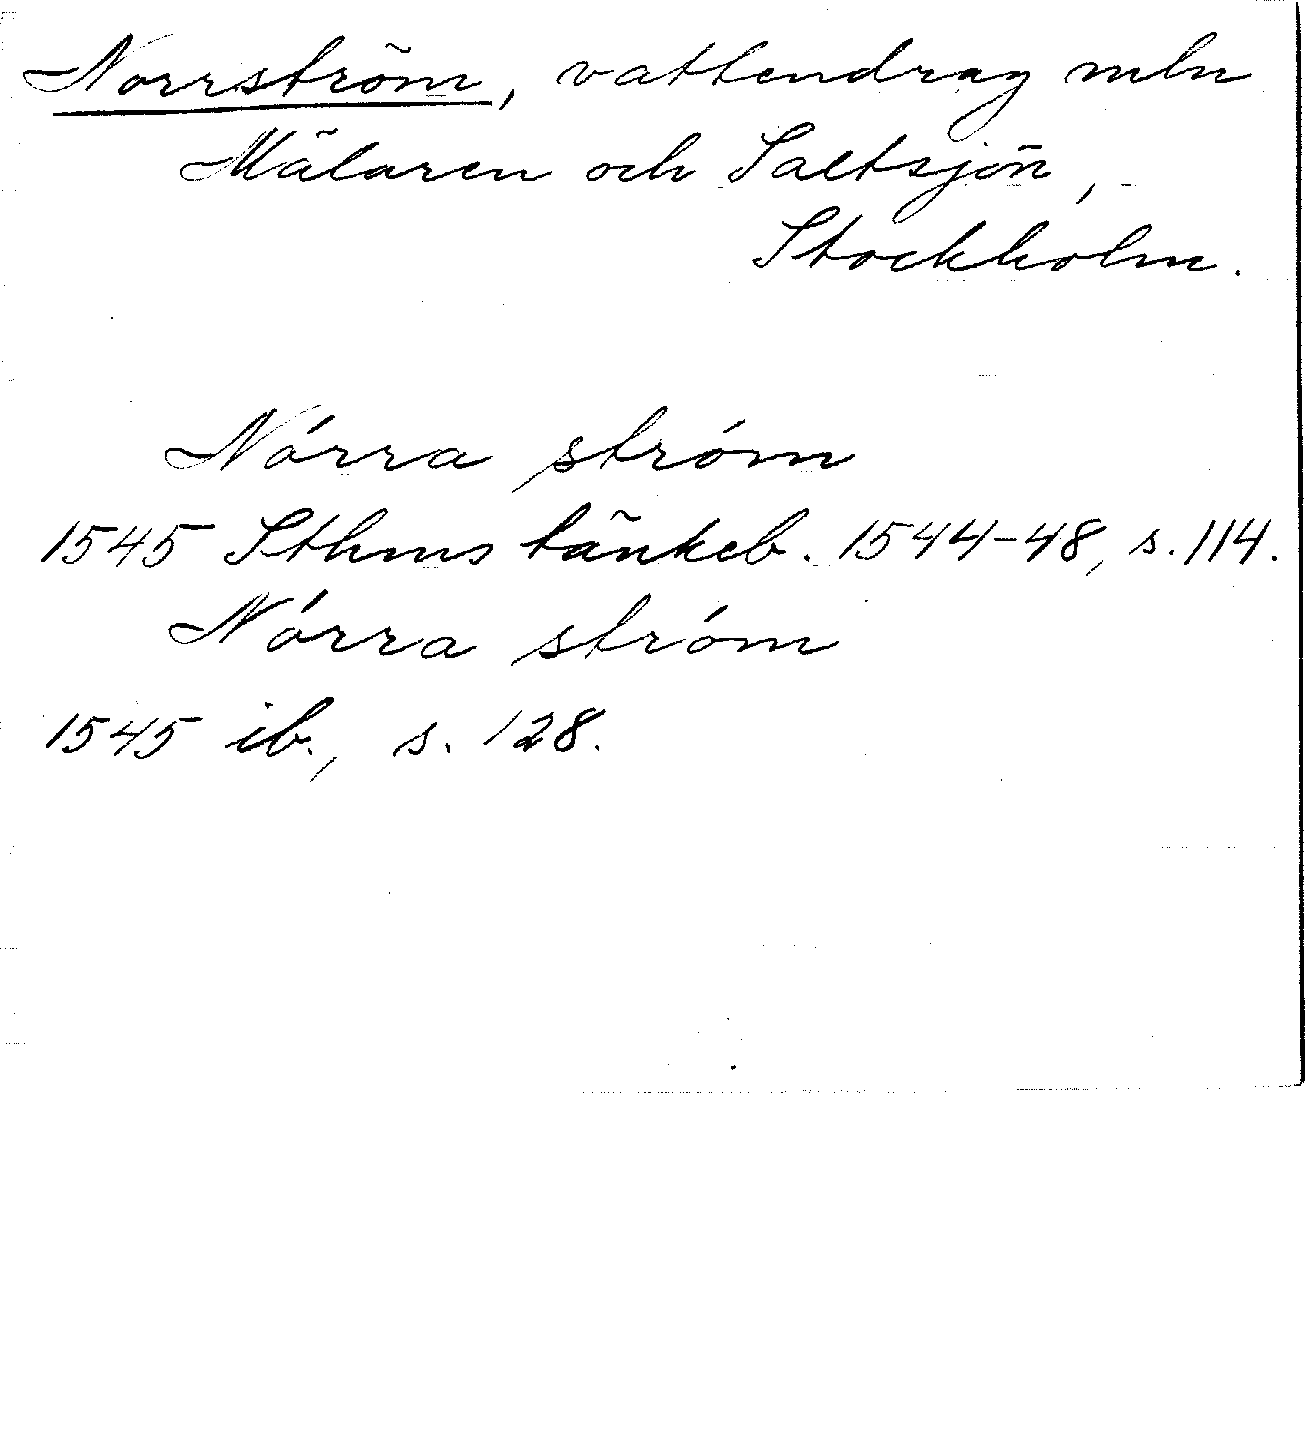 Norrström, vattendrag mln
Mälaren och Saltsjön,
Stockholm.
Nórra ström
1545 Sthms tänkeb. 1544-48, s. 114.
Nórra stróm
1545 ib., s. 128.